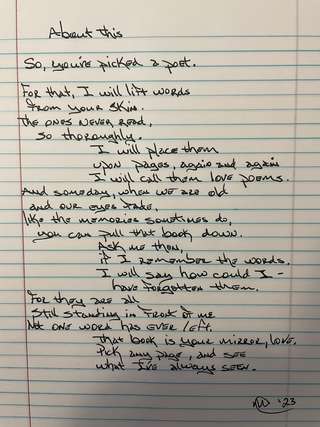 About this
So, you've picked a poet.
For that, I will lift words
from your skin.
The ones never read,
so thoroughly.
I will place them
upon pages, again and again
I will call them love poems.
And someday, when we are old
and our eyes fade,
like the memories sometimes do,
you can pull that book down.
Ask me then,
if I remember the words.
I will say how could I -
have forgotten them.
For they are all
still standing in front of me
Not one word has ever left.
That book is your mirror, love.
Pick any page, and see
what I've always seen.
'23